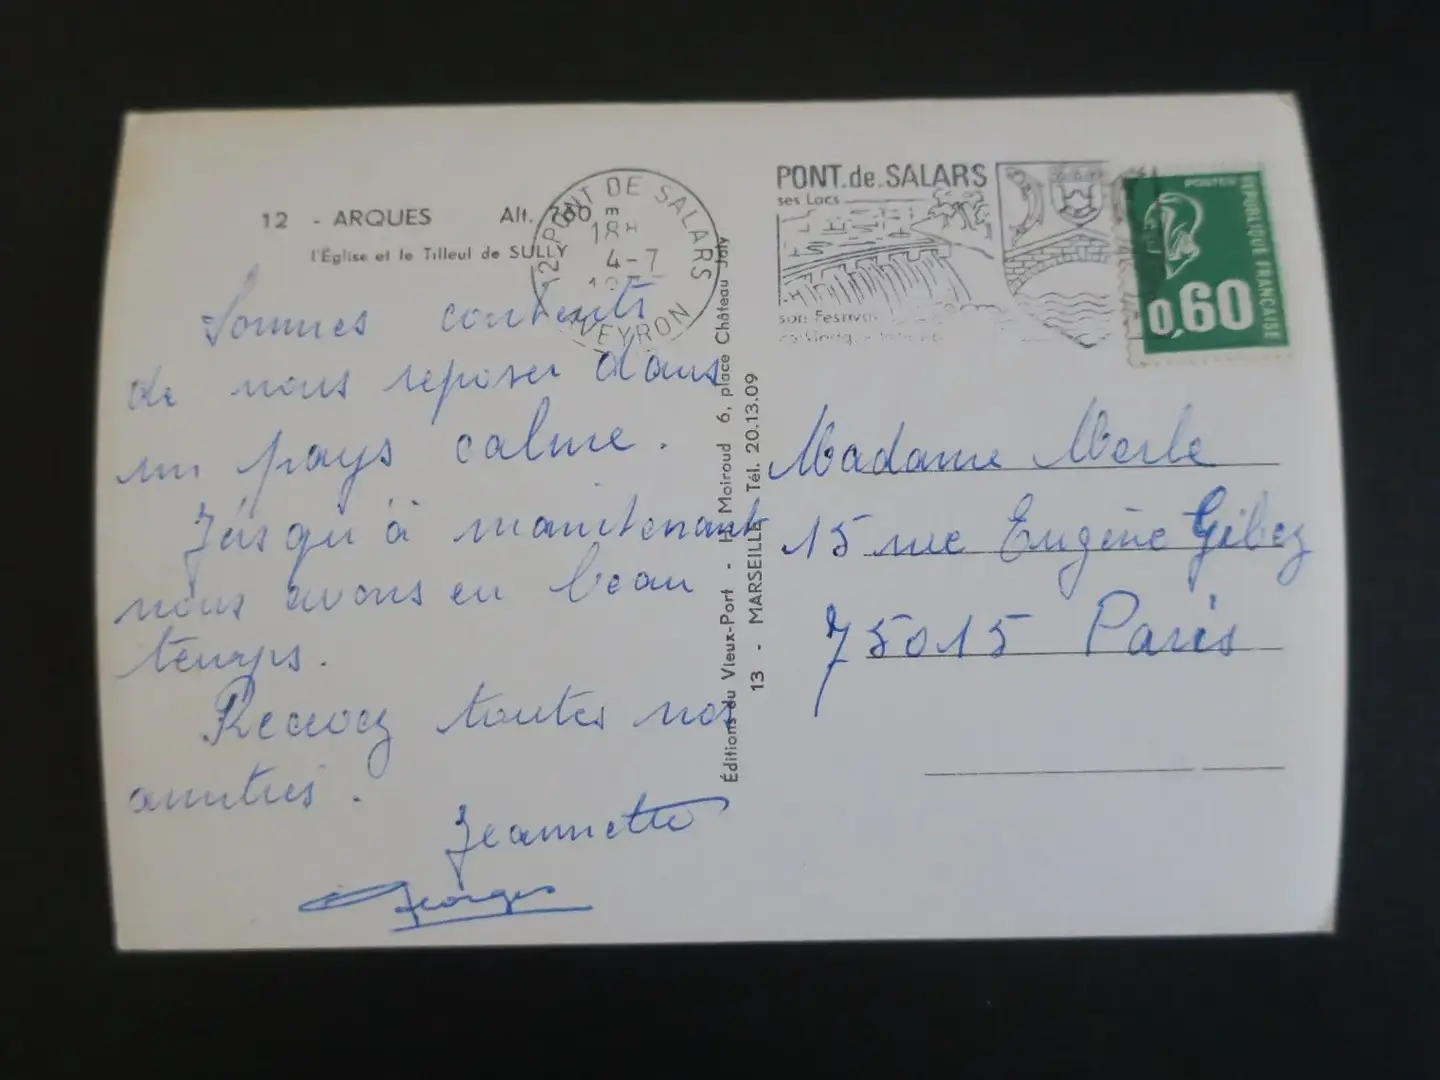 12 - ARQUES Alt. 760
l'Église et le Tilleul de SULLY
12 PONT DE SALARS
18H
4-7
AVEYRON
PONT.de.SALARS
ses Lacs
son Festival
POSTES
RÉPUBLIQUE FRANÇAISE
0,60
Sommes contents
de nous reposer dans
un pays calme.
Jusqu'à maintenant
nous avons eu beau
temps.
Recevez toutes nos
amitiés.
Jeannette
Georges
Éditions du Vieux-Port - H. Moiroud 6, place Château Joly
13 - MARSEILLE Tél. 20.13.09
Madame Merle
15 rue Eugène Gibez
75015 Paris